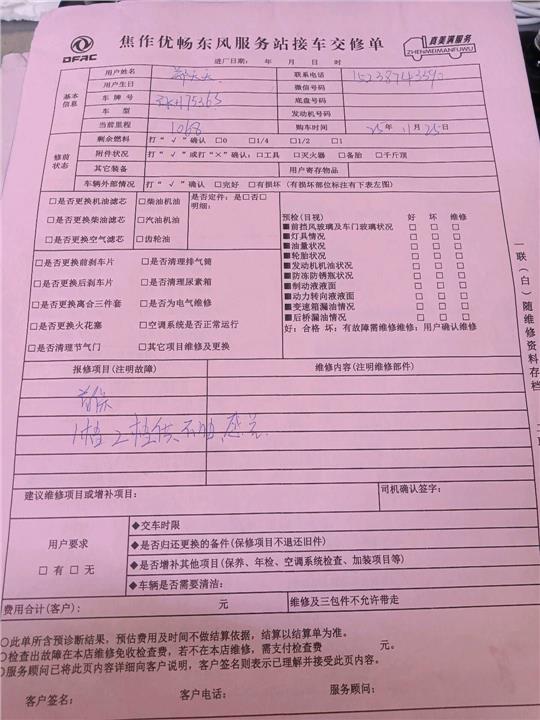 DFAC
焦作优畅东风服务站接车交修单
真美满服务
ZHENMEIMANFUWU
进厂日期: 年 月 日 时
基本信息
用户姓名 联系电话
用户生日 微信号码
车牌号 底盘号码
车型 发动机号码
当前里程 1068 购车时间 25年 11月 25日
修前状态
剩余燃料 打“√”确认 □0 □1/4 □1/2 □1
附件状况 打“√”或打“×”确认: □工具 □灭火器 □备胎 □千斤顶
其它装备 用户寄存物品
车辆外部情况 打“√”确认 □完好 □有损坏 (有损坏部位标注有下表左图)
□是否更换机油滤芯 □柴油机油 是否定件: 是□否□
明细:
□是否更换柴油滤芯 □汽油机油
□是否更换空气滤芯 □齿轮油
□是否更换前刹车片 □是否清理排气筒
□是否更换后刹车片 □是否清理尿素箱
□是否更换离合三件套 □是否为电气维修
□是否更换火花塞 □空调系统是否正常运行
□是否清理节气门 □其它项目维修及更换
预检(目视) 好 坏 维修
■前挡风玻璃及车门玻璃状况 □ □ □
■灯具情况 □ □ □
■油量状况 □ □ □
■轮胎状况 □ □ □
■发动机机油状况 □ □ □
■防冻防锈瓶状况 □ □ □
■制动液液面 □ □ □
■动力转向液液面 □ □ □
■变速箱漏油情况 □ □ □
■后桥漏油情况 □ □ □
好: 合格 坏: 有故障需维修维修: 用户确认维修
一联(白)随维修资料存档
报修项目(注明故障) 维修内容(注明维修部件)
首保
1档 2档
建议维修项目或增补项目: 司机确认签字:
用户要求
□有 □无
◆交车时限
◆是否归还更换的备件(保修项目不退还旧件)
◆是否增补其他项目(保养、年检、空调系统检查、加装项目等)
◆车辆是否需要清洁:
费用合计(客户): 元 维修及三包件不允许带走
○此单所含预诊断结果,预估费用及时间不做结算依据,结算以结算单为准。
○检查出故障在本店维修免收检查费,若不在本店维修,需支付检查费 元。
○服务顾问已将此页内容详细向客户说明,客户签名则表示已理解并接受此页内容。
客户签名: 客户电话: 服务顾问: